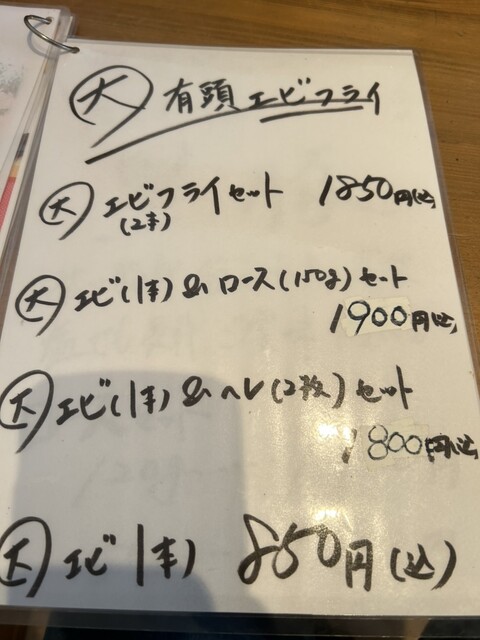 大 有頭エビフライ
大 エビフライセット 1850円(込)
(2本)
大 エビ(1本)&ロース(150g)セット
1900円(込)
大 エビ(1本)&ヘレ(2枚)セット
1800円(込)
大 エビ1本 850円(込)